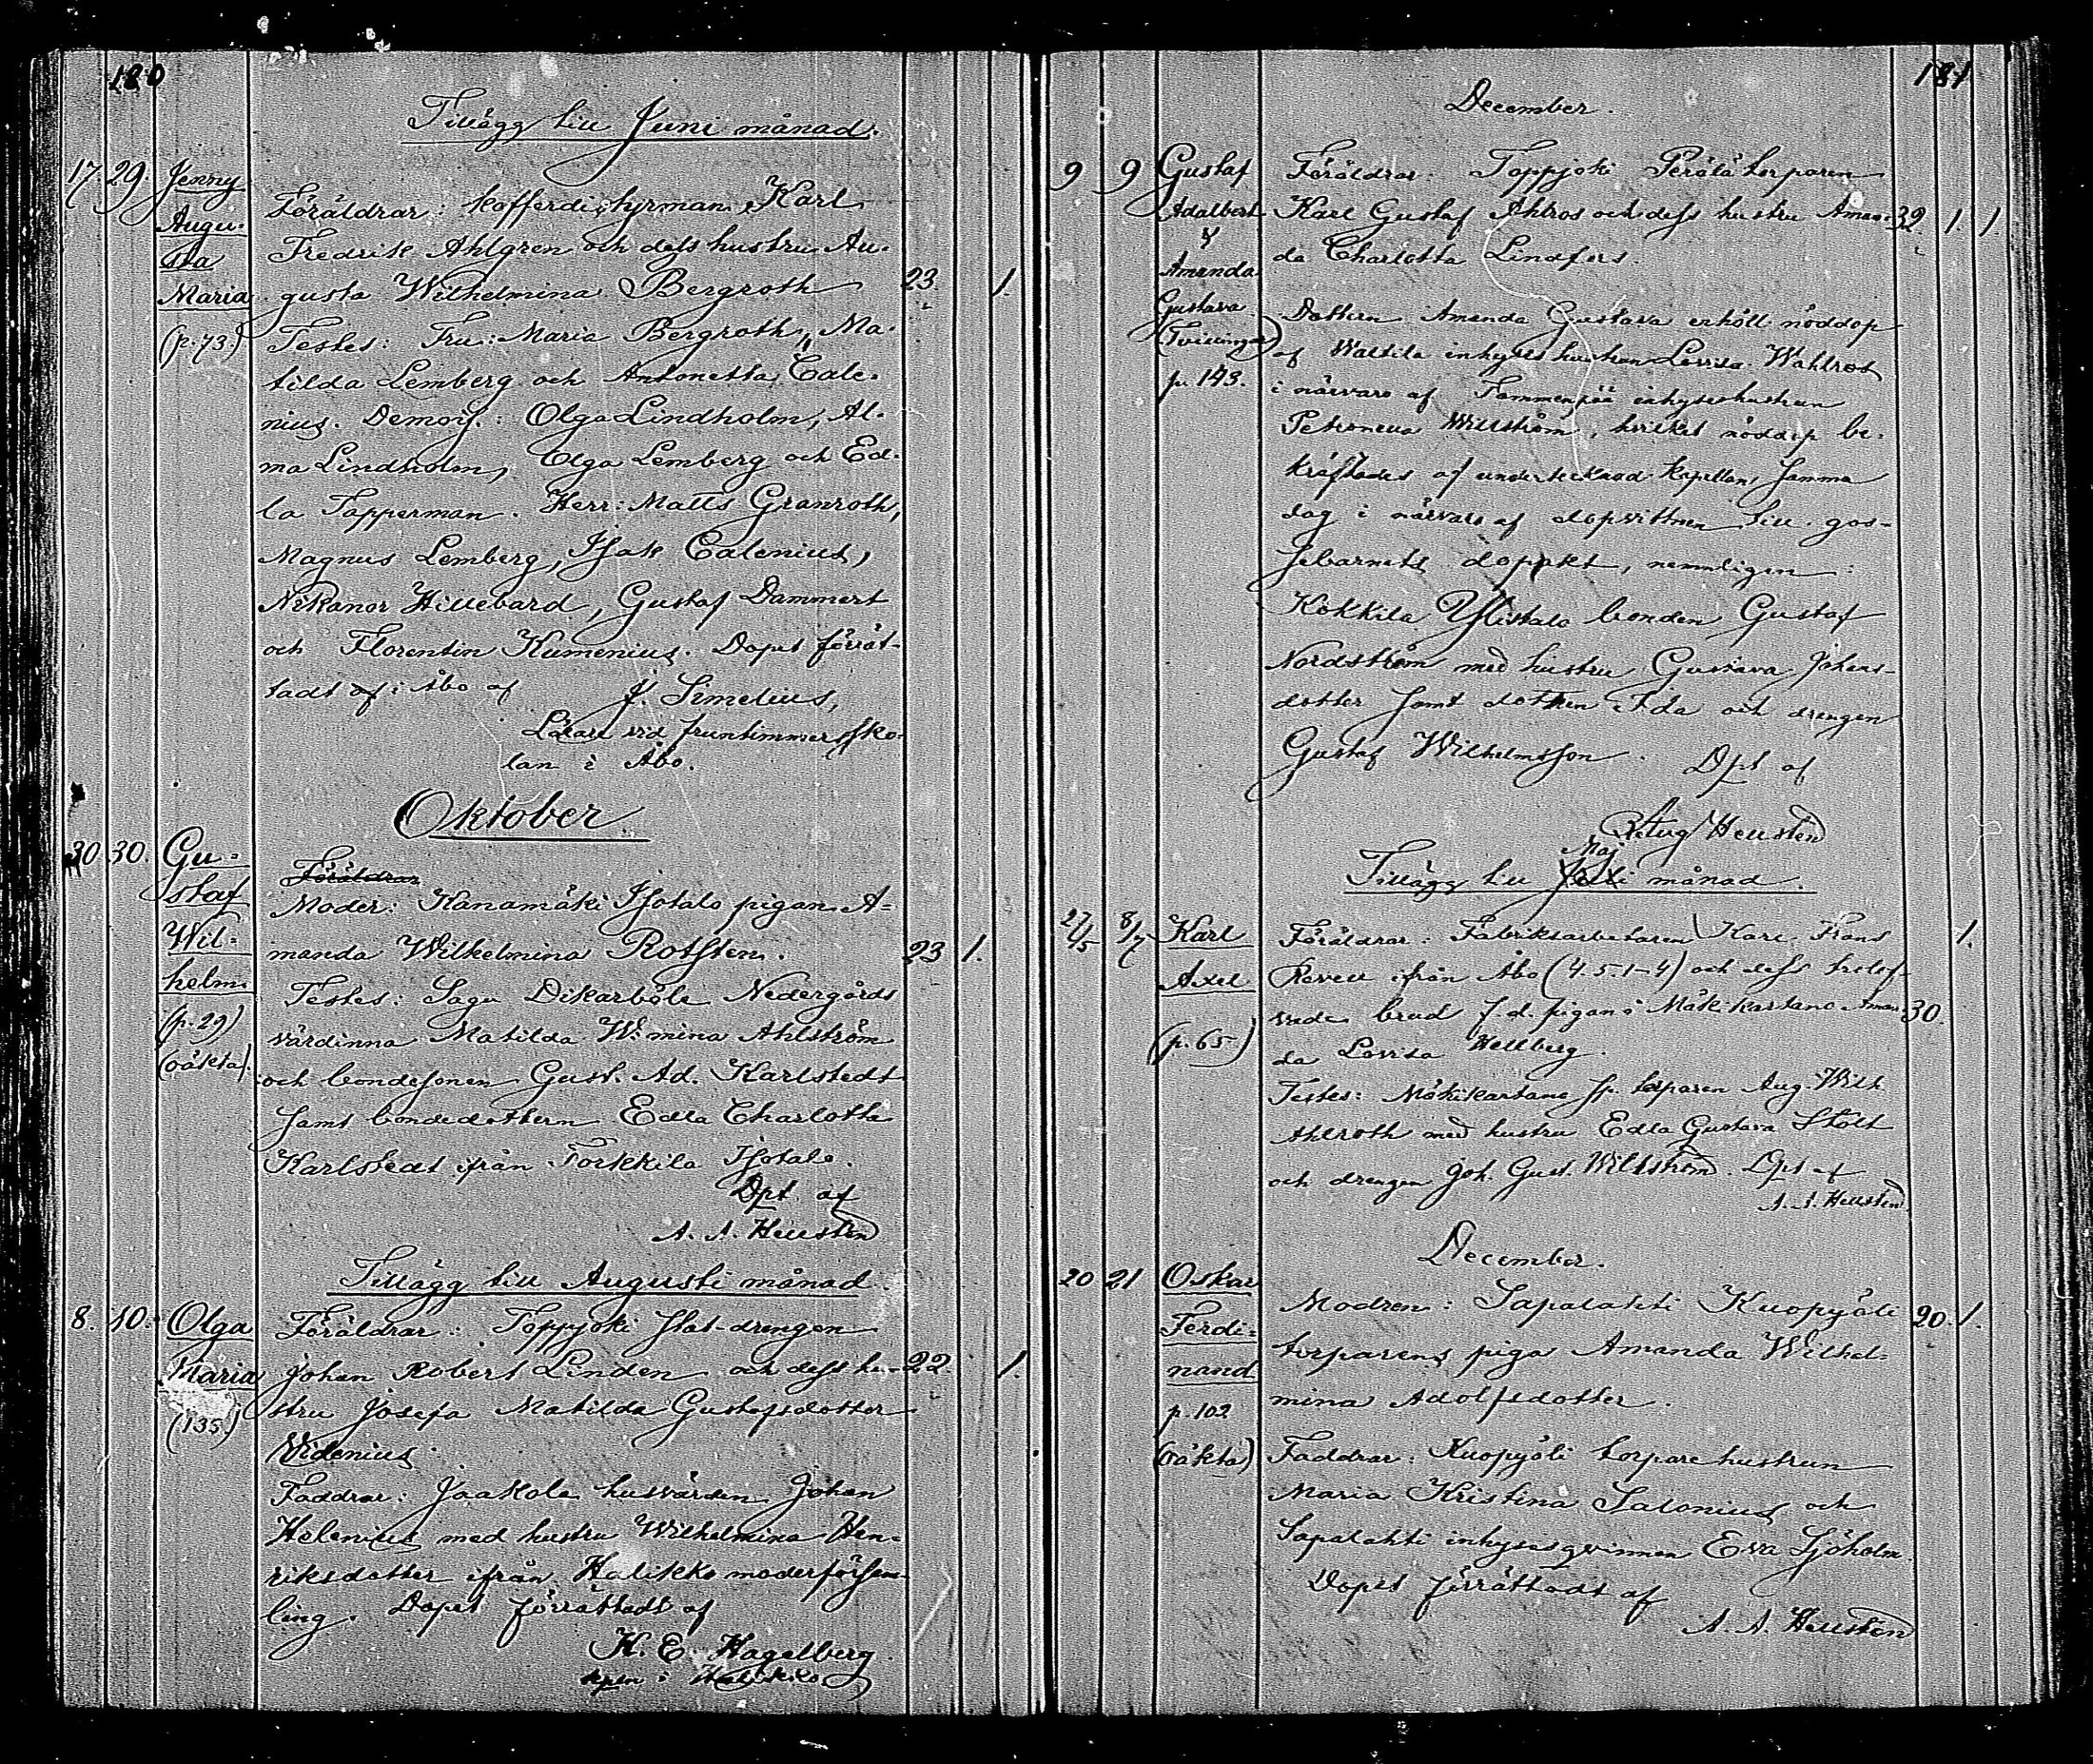 180
Tillägg till Juni månad.
17. 29. Jenny
Augu-
sta
Maria
(p. 73.)
Föräldrar: Kofferdistyrman Karl
Fredrik Ahlgren och dess hustru Au-
gusta Wilhelmina Bergroth 23. 1.
Testes: Fru: Maria Bergroth, Ma-
tilda Lemberg och Antonetta Cale-
nius. Demois.: Olga Lindholm, Al-
ma Lindholm, Olga Lemberg och Ed-
la Tapperman. Herr: Matts Granroth,
Magnus Lemberg, Isak Calenius,
Nikanor Hillebard, Gustaf Dammert
och Florentin Kumenius. Dopet förrät-
tadt af i Åbo af J. Simelius,
Lärare vid fruntimmersko-
lan i Åbo.
Oktober
30. 30. Gu-
staf
Wil-
helm.
(p. 29)
(oäkta).
Föräldrar
Moder: Hanamäki Isotalo pigan A-
manda Wilhelmina Rotsten. 23 1.
Testes: Sagu Dikarböle Nedergårds
värdinna Matilda W:mina Ahlström
och bondesonen Gust. Ad. Karlstedt
samt bondedottern Edla Charlotta
Karlstedt ifrån Torkkila Isotalo.
Dpt af
A. A. Hellstén
Tillägg till Augusti månad.
8. 10. Olga
Maria
(135.)
Föräldrar: Toppjoki stat-drengen
Johan Robert Linden och dess hu- 22. 1.
stru Josefa Matilda Gustafsdotter
Widenius.
Faddrar: Jaakola husvärden Johan
Helenius med hustru Wilhelmina Hen-
riksdotter ifrån Halikko moderförsam-
ling. Dopet förrättadt af
K. E. Hagelberg
kpln i Halikko.
181
December.
9 9 Gustaf
Adalbert
&
Amanda
Gustava.
(Tvillingar)
p. 143.
Föräldrar: Toppjoki Perälä torparen
Karl Gustaf Ahlros och dess hustru Aman- 32. 1. 1
da Charlotta Lindfors.
Dottren Amanda Gustava erhöll nöddop
af Waltila inhyses hustrun Lovisa Wahlros
i närvaro af Tammenpää inhyseshustrun
Petronella Willström, hvilket nöddop be-
kräftades af undertecknad kapellan, samma
dag i närvaro af dopvittnen till gos-
sebarnets dopakt, nemligen:
Kokkila Ylistalo bonden Gustaf
Nordström med hustru Gustava Johans-
dotter samt dottren Ida och drengen
Gustaf Wilhelmsson. Dpt af
Aug Hellstén
Maj
Tillägg till Juli månad.
27/5 8/7 Karl
Axel
(p. 65)
Föräldrar: Fabriksarbetaren Karl Frans 1.
Revell ifrån Åbo (4. 5. 1-4) och dess trolof-
vade brud f. d. pigan i Mäkikartano Aman- 30.
da Lovisa Hellberg.
Testes: Mäkikartano sp. torparen Aug. Wilh
Ahlroth med hustru Edla Gustava Stolt
och drengen Joh. Gust. Willström. Dpt af
A. A. Hellstén
December.
20 21 Oskar
Ferdi-
nand
p. 102
(oäkta)
Modren: Sapalahti Kuopyöli 20. 1.
torparens piga Amanda Wilhel-
mina Adolfsdotter.
Faddrar: Kuopyöli torparehustrun
Maria Kristina Salonius och
Sapalahti inhysesqvinnan Eva Sjöholm.
Dopet förrättadt af
A. A. Hellstén